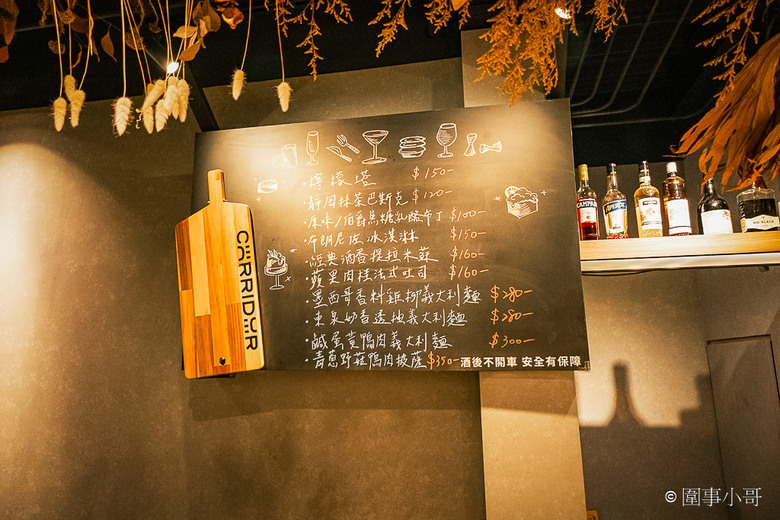 ・檸檬塔 $150-
・靜岡抹茶巴斯克 $120-
・原味/伯爵焦糖乳酪布丁 $100-
・布朗尼佐冰淇淋 $150-
・經典酒香提拉米蘇 $160-
・蘋果肉桂法式吐司 $160-
・墨西哥香料雞柳義大利麵 $280-
・東泉 香 義大利麵 $280-
・鹹蛋黃鴨肉義大利麵 $300-
・青蔥野菇鴨肉披薩 $350-
酒後不開車 安全有保障
CORRIDOR
CAMPARI
APEROL
© 圍事小哥